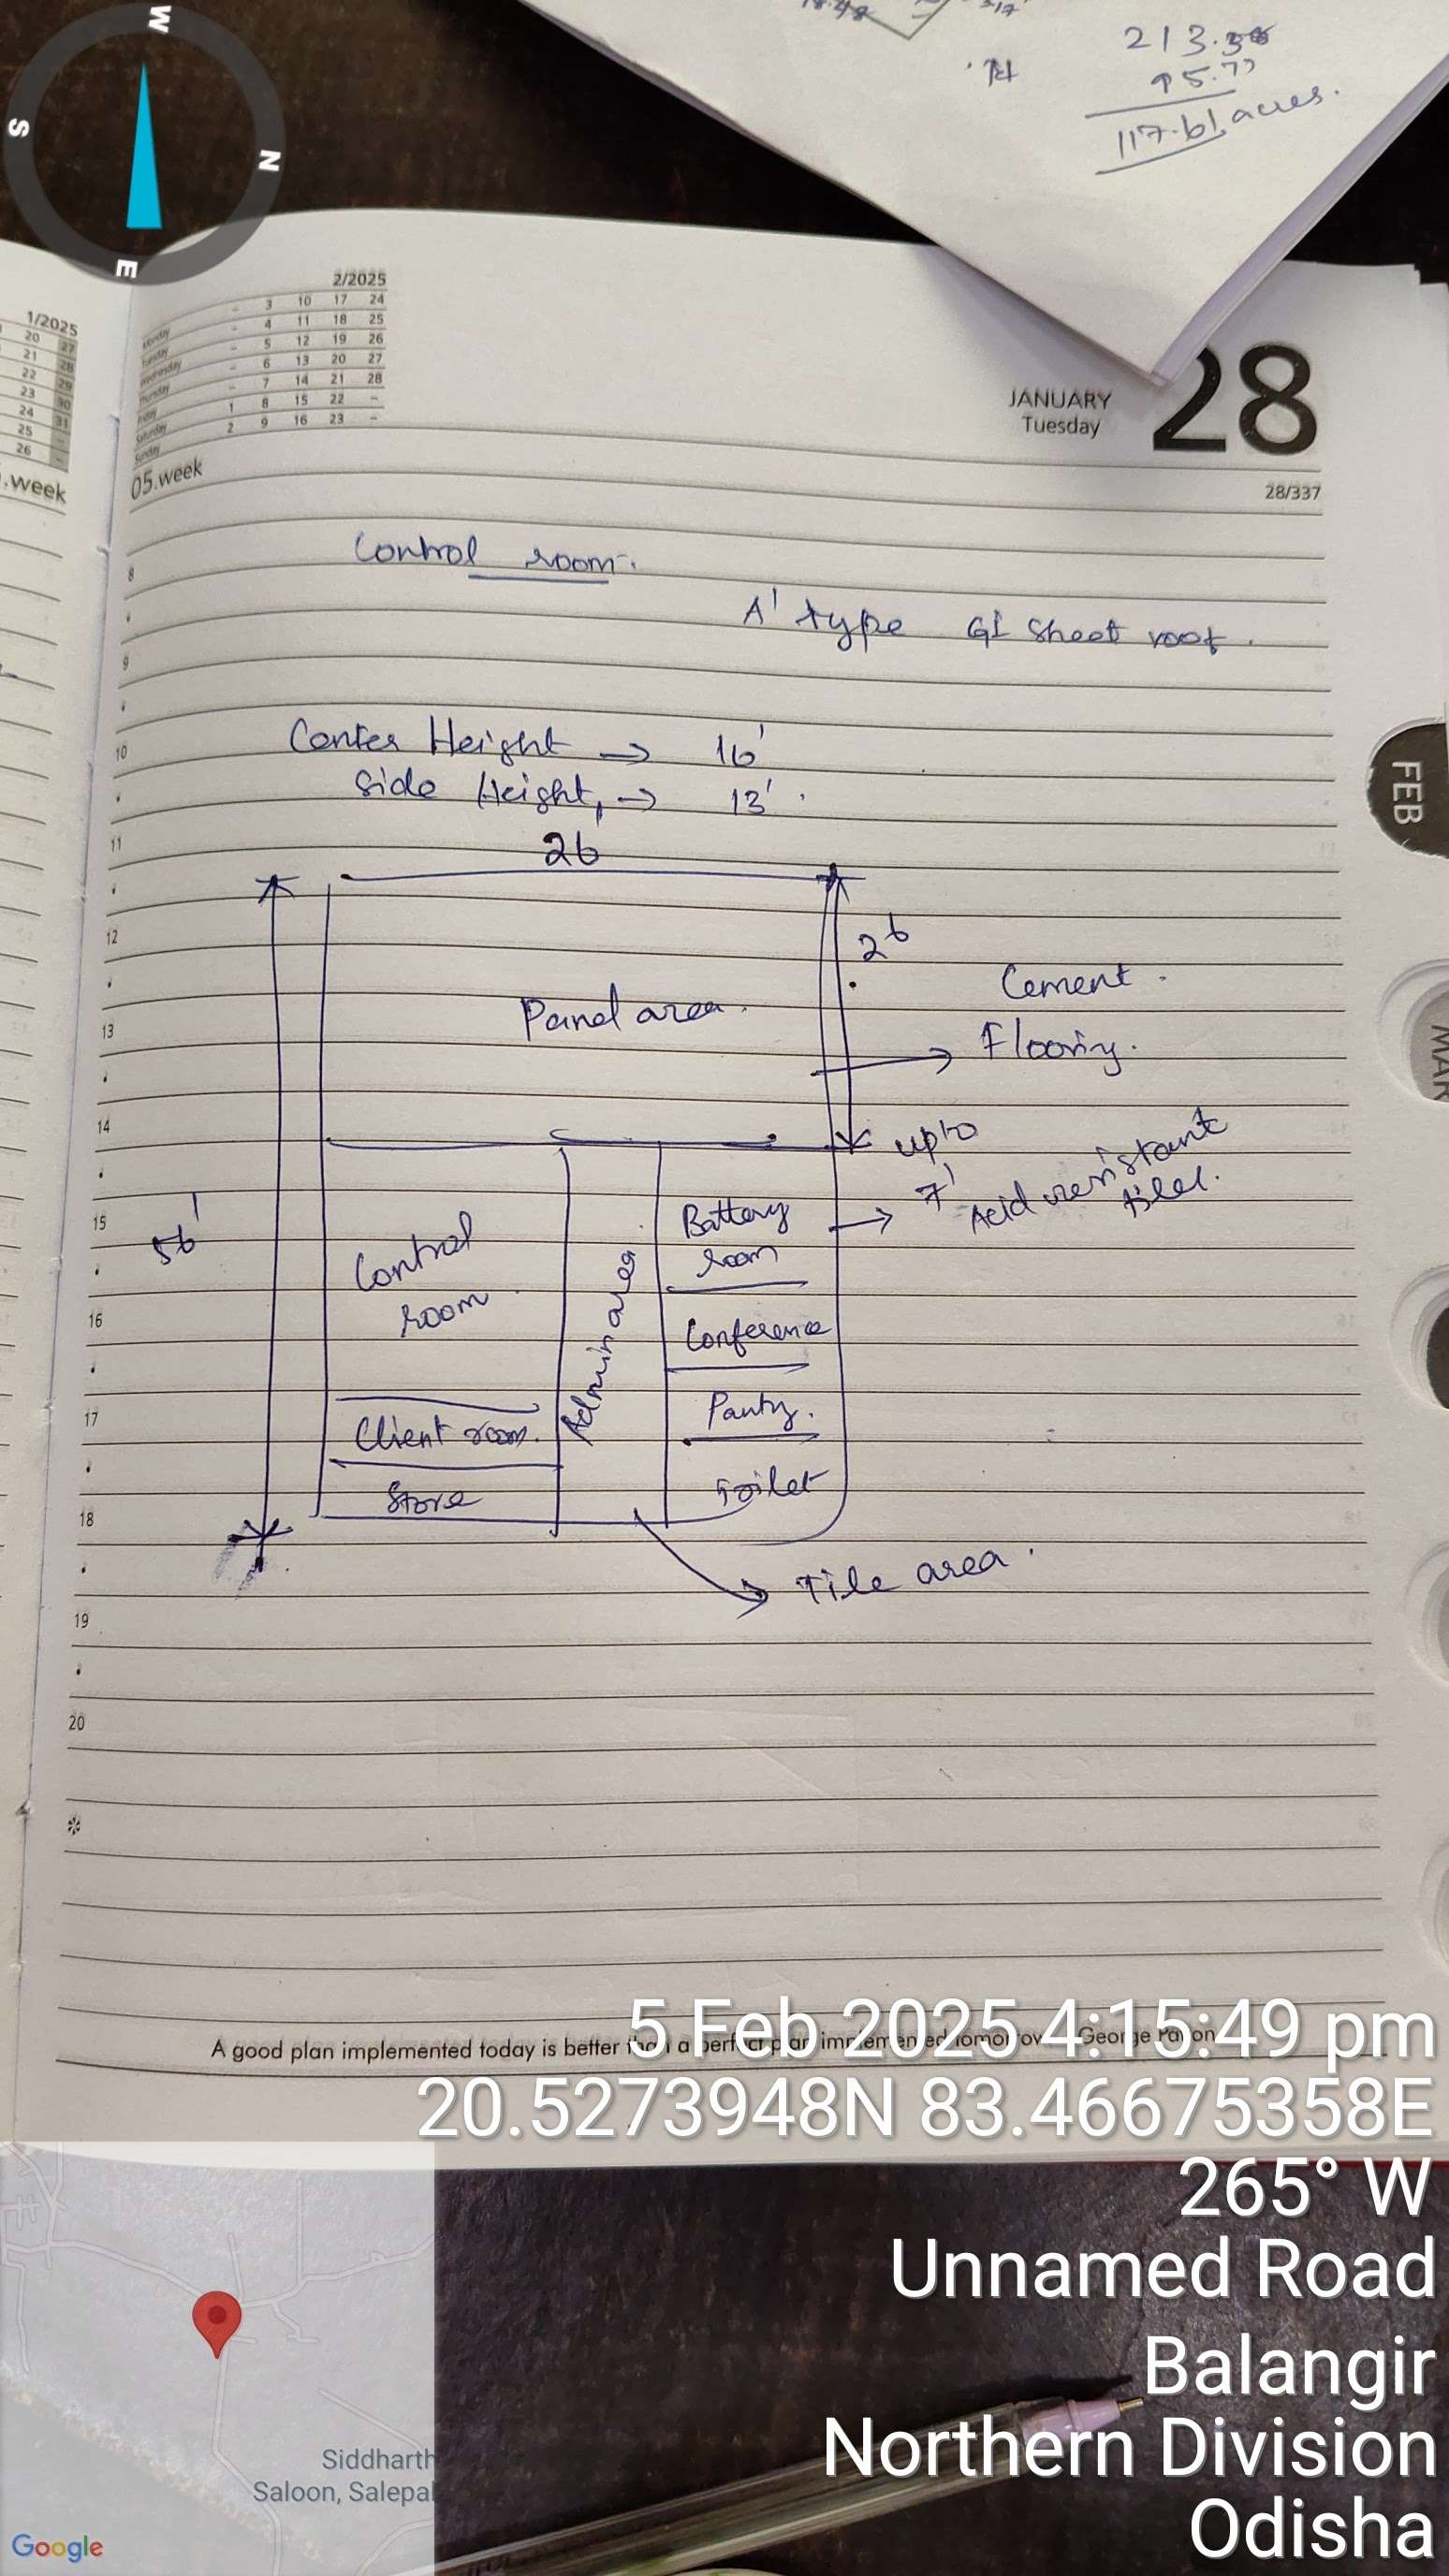 W
S
N
E
213.38
95.77
117.61 acres.
1/2025
20 27
21 28
22 29
23 30
24 31
25 -
26 -
.week
2/2025
Monday - 3 10 17 24
Tuesday - 4 11 18 25
Wednesday - 5 12 19 26
Thursday - 6 13 20 27
Friday - 7 14 21 28
Saturday 1 8 15 22 -
Sunday 2 9 16 23 -
05.week
JANUARY
Tuesday
28
28/337
Control room.
A' type GI Sheet roof.
Center Height → 16'
Side Height, → 13'.
26
26
Panel area.
Cement.
Flooring.
upto
7'
Acid resistant
tiles.
56'
Control
room
Admin area
Battery
room
Conference
Pantry.
Toilet
Client room.
Store
Tile area.
8
9
10
11
12
13
14
15
16
17
18
19
20
FEB
MAR
A good plan implemented today is better than a perfect plan implemented tomorrow. George Patton
5 Feb 2025 4:15:49 pm
20.5273948N 83.46675358E
265° W
Unnamed Road
Balangir
Northern Division
Odisha
Siddharth
Saloon, Salepal
Google